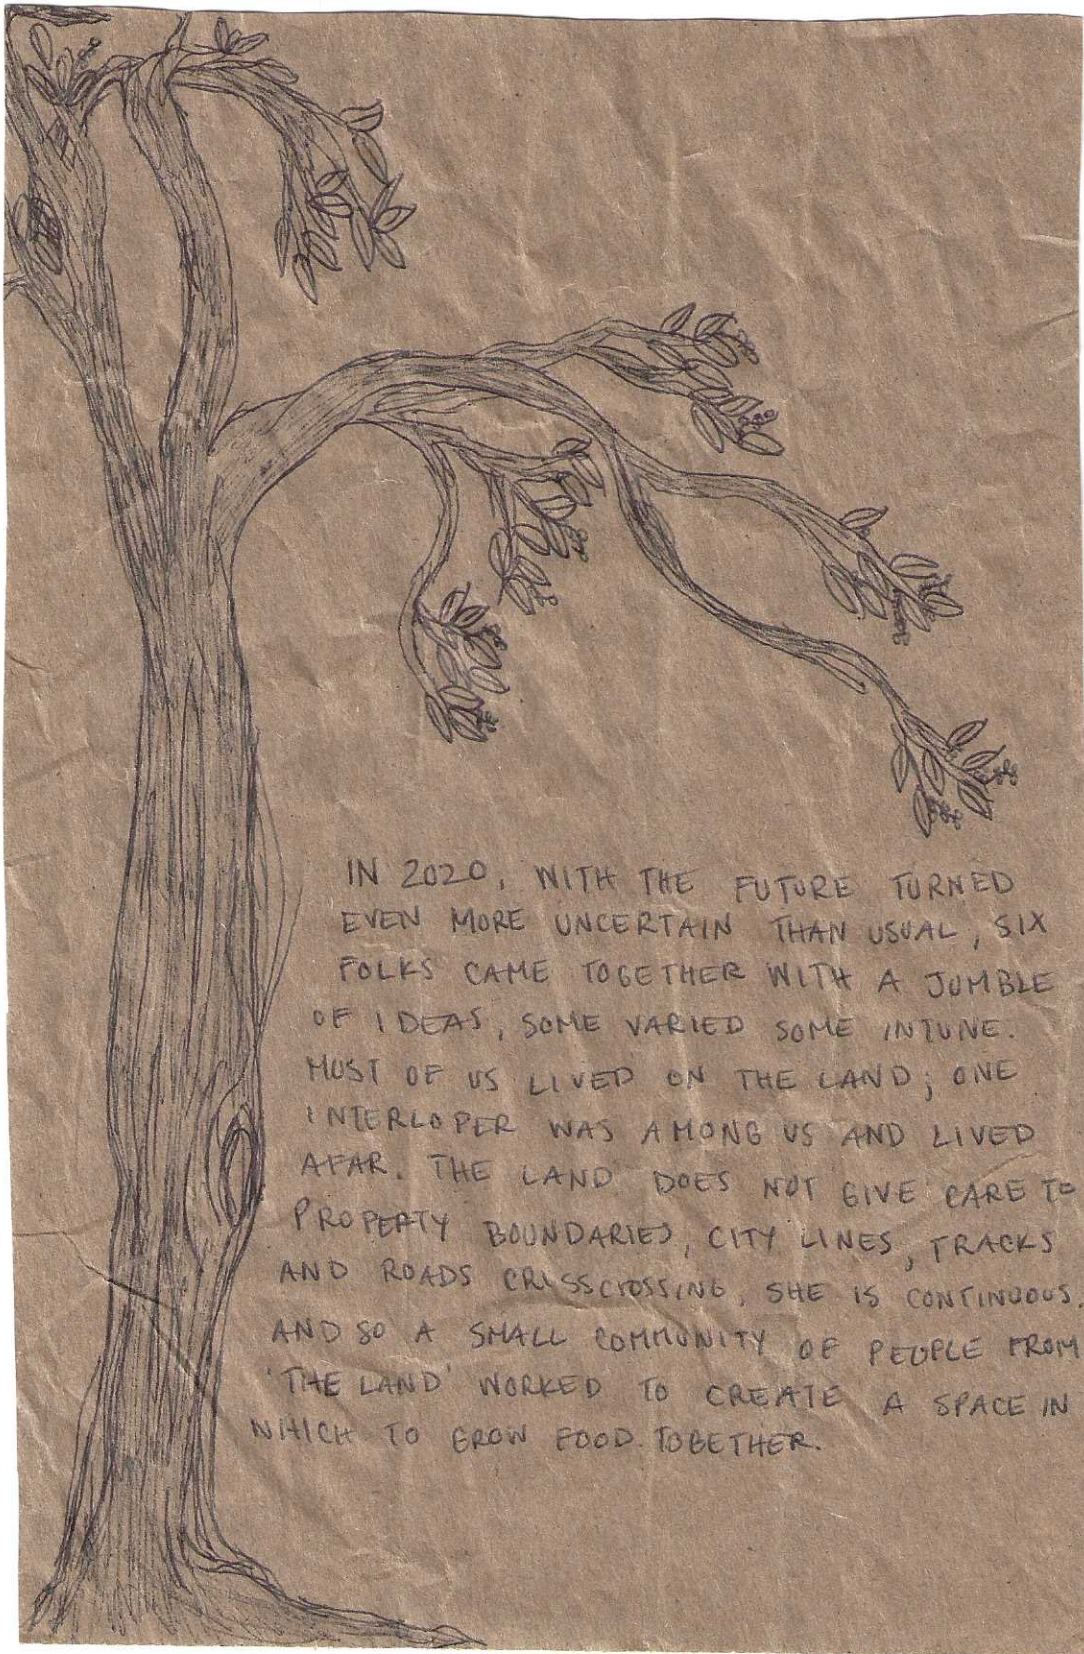 IN 2020, WITH THE FUTURE TURNED
EVEN MORE UNCERTAIN THAN USUAL, SIX
FOLKS CAME TOGETHER WITH A JUMBLE
OF IDEAS, SOME VARIED SOME INTUNE.
MOST OF US LIVED ON THE LAND; ONE
INTERLOPER WAS AMONG US AND LIVED
AFAR. THE LAND DOES NOT GIVE CARE TO
PROPERTY BOUNDARIES, CITY LINES, TRACKS
AND ROADS CRISSCROSSING, SHE IS CONTINUOUS.
AND SO A SMALL COMMUNITY OF PEOPLE FROM
'THE LAND' WORKED TO CREATE A SPACE IN
WHICH TO GROW FOOD TOGETHER.